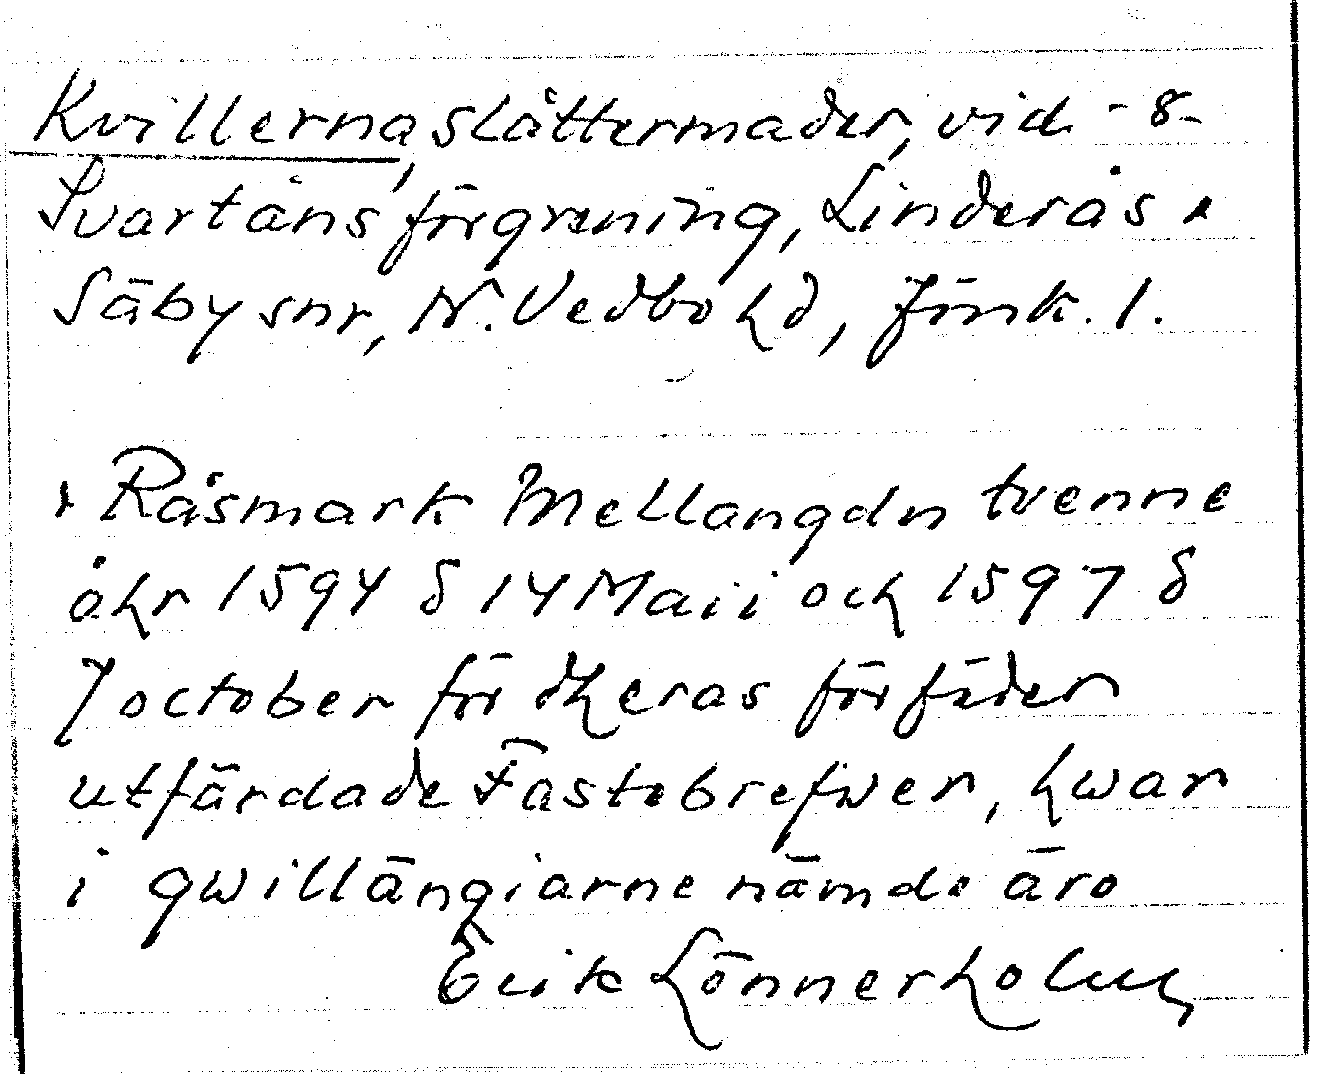 Kvillerna, slåttermader, vid -8-
Svartåns förgrening, Linderås &
Säby snr, N. Vedbo hd, Jönk. l.
Råsmark Mellangdn tvenne
åhr 1594 d 14 Maii och 1597 d
7 october för dheras förfäder
utfärdade Fastebrefwer, hwar
i qwillängiarne nämde äro
Erik Lönnerholm